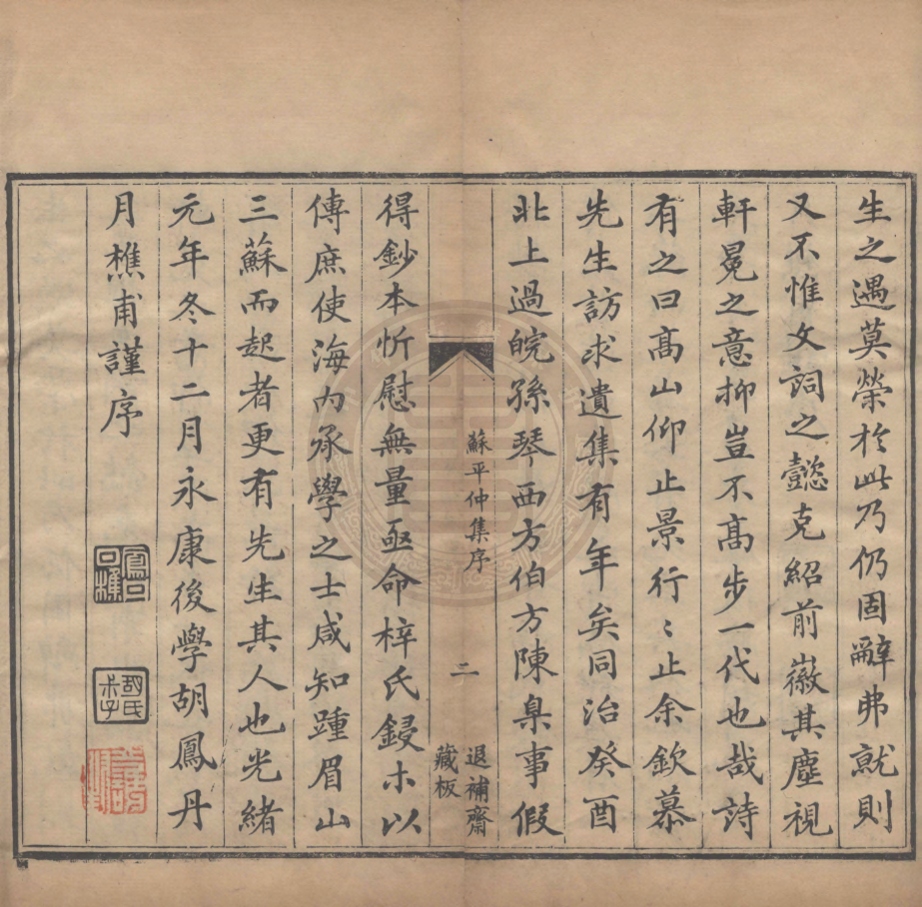 生之遇莫榮於此乃仍固辭弗就則
又不惟文詞之懿克紹前徽其塵視
軒冕之意抑豈不高步一代也哉詩
有之曰高山仰止景行〻止余欽慕
先生訪求遺集有年矣同治癸酉
北上過皖孫琴西方伯方陳臬事假
蘇平仲集序
二
退補齋
藏板
得鈔本忻慰無量亟命梓氏鋟木以
傳庶使海內承學之士咸知踵眉山
三蘇而起者更有先生其人也光緒
元年冬十二月永康後學胡鳳丹
月樵甫謹序
胡氏